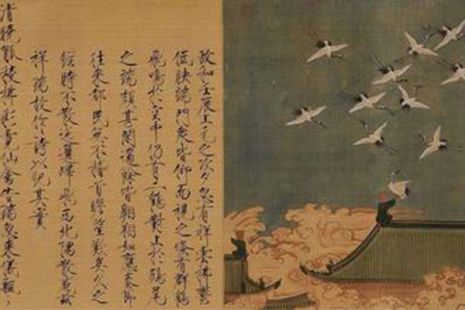 政和壬辰上元之次夕忽有祥雲拂鬱
低映端門眾皆仰而視之倏有群鶴
飛鳴於空中仍有二鶴對止於鴟尾
之端頗甚閒適餘皆翱翔如應奏節
往來都民無不稽首瞻望歎異久之
經時不散迤邐歸飛西北隅散感茲
祥瑞故作詩以紀其實
清曉觚稜拂彩霓仙禽告瑞忽來儀飄〻